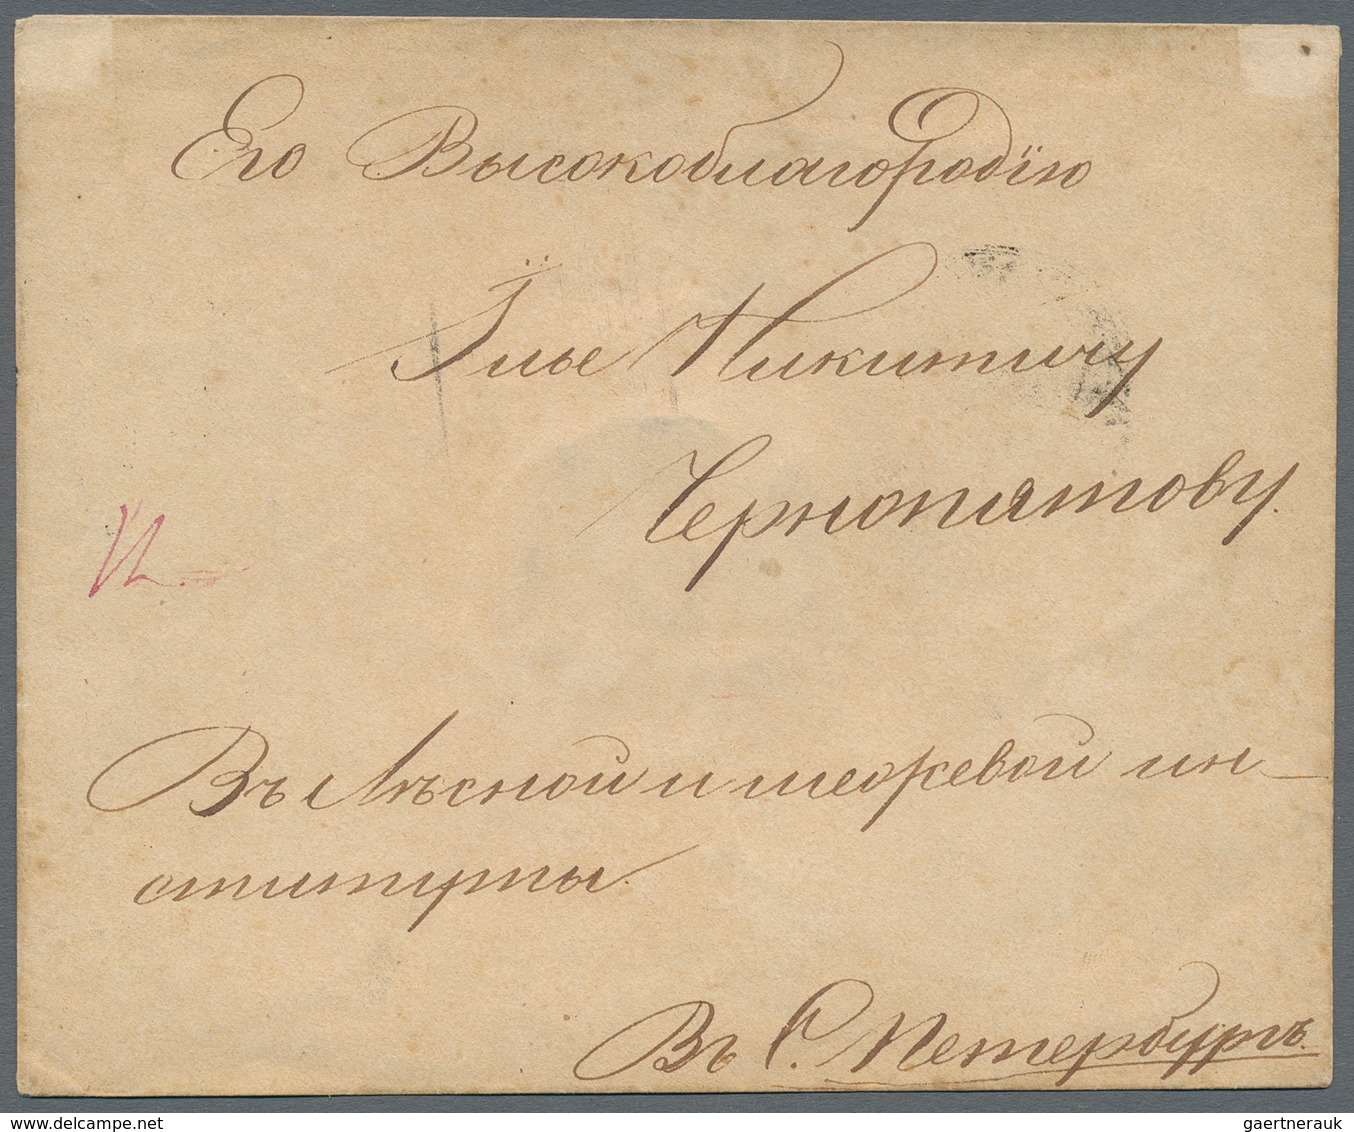 Его Высокоблагородїю
Їлье Никитичу
Чернопятову.
Въ Лѣсной и межевой ин-
ституты.
Въ С. Петербургъ.
www.delcampe.net
gaertnerauk